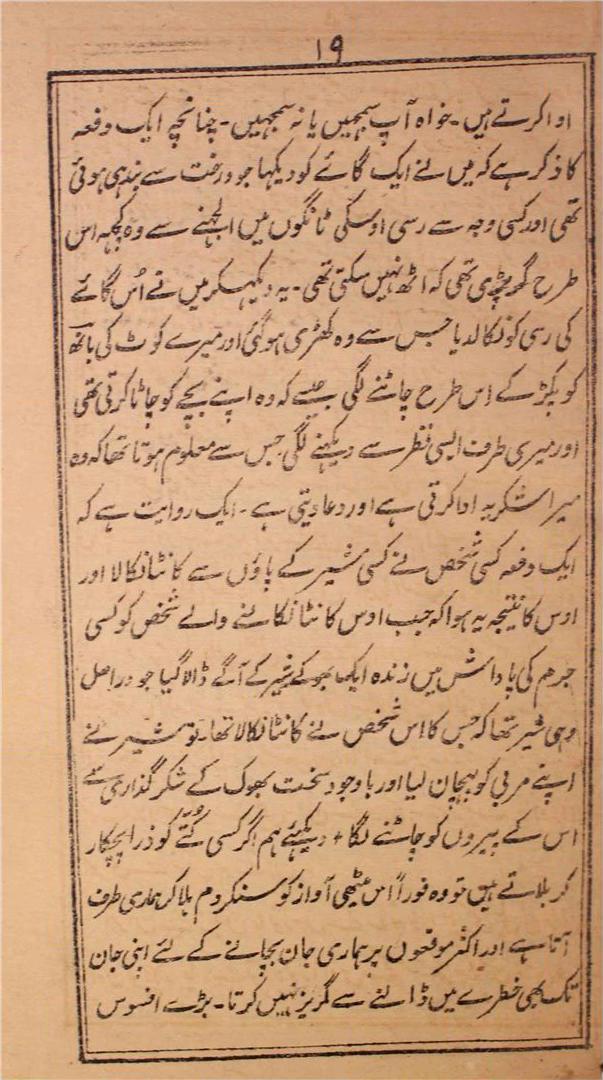 ۱۹
اداکرتے ہیں۔خواہ آپ سمجہیں یا نہ سمجہیں۔چنانچہ ایک دفعہ
کا ذکر ہے کہ میں نے ایک گائے کو دیکہا جو درخت سے بندہی ہوئی
تھی اور کسی وجہ سے رسی اوسکی ٹانگوں میں الجہنے سے وہ کچہہ اس
طرح گر پڑی تھی کہ اٹھ نہیں سکتی تھی۔یہ دیکہکر میں نے اُس گائے
کی رسی کو نکالدیا جس سے وہ کھڑی ہوگئی اور میرے کوٹ کی بانھ
کو پکڑ کے اِس طرح چاٹنے لگی جیسے کہ وہ اپنے بچے کو چاٹا کرتی تھی
اور میری طرف ایسی نظر سے دیکہنے لگی جس سے معلوم ہوتا تھا کہ وہ
میرا شکریہ ادا کرتی ہے اور دعا دیتی ہے۔ایک روایت ہے کہ
ایک دفعہ کسی شخص نے کسی شیر کے پاؤں سے کانٹا نکالا اور
اوس کا نتیجہ یہ ہوا کہ جب اوس کانٹا نکالنے والے شخص کو کسی
جرم کی پاداش میں زندہ ایک بھوکے شیر کے آگے ڈالا گیا جو دراصل
وہی شیر تھا کہ جس کا اِس شخص نے کانٹا نکالا تھا۔تو شیر نے
اپنے مربی کو پہچان لیا اور باوجود سخت بھوک کے شکر گذاری سے
اس کے پیروں کو چاٹنے لگا + دیکہئے ہم اگر کسی کُتّے کو ذرا پچکار
کر بلاتے ہیں تو وہ فوراً اس میٹھی آواز کو سنکر دم ہلا کر ہماری طرف
آتا ہے اور اکثر موقعوں پر ہماری جان بچانے کے لئے اپنی جان
تک بھی خطرے میں ڈالنے سے گریز نہیں کرتا۔بڑے افسوس